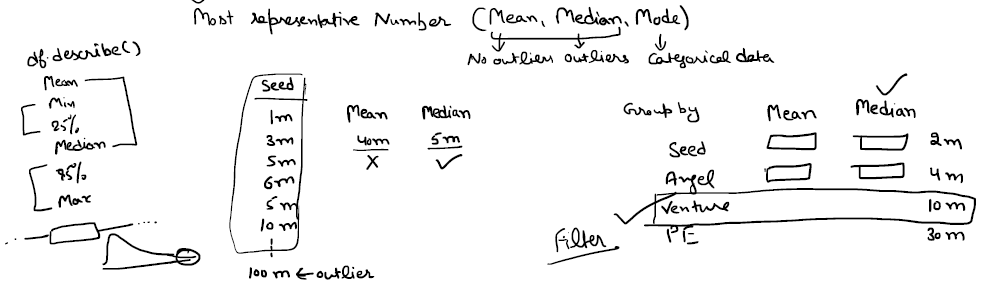 Most representative Number (Mean, Median, Mode)
No outliers outliers Categorical data
df.describe()
Mean
Min
25%
Median
75%
Max
Seed
1m
3m
5m
6m
5m
10m
100m ← outlier
Mean Median
40m 5m
X ✓
Group by Mean Median ✓
Seed 2m
Angel 4m
Venture 10m
PE 30m
Filter